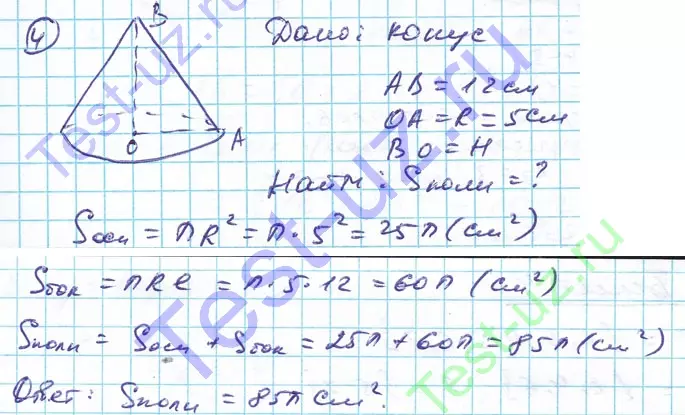 4
Дано: конус
B
AB = 12 см
OA = R = 5 см
BO = H
O A
Найти: Sполн = ?
Sосн = πR² = π · 5² = 25π (см²)
Sбок = πRl = π · 5 · 12 = 60π (см²)
Sполн = Sосн + Sбок = 25π + 60π = 85π (см²)
Ответ: Sполн = 85π см².
Test-uz.ru
Test-uz.ru
Test-uz.ru